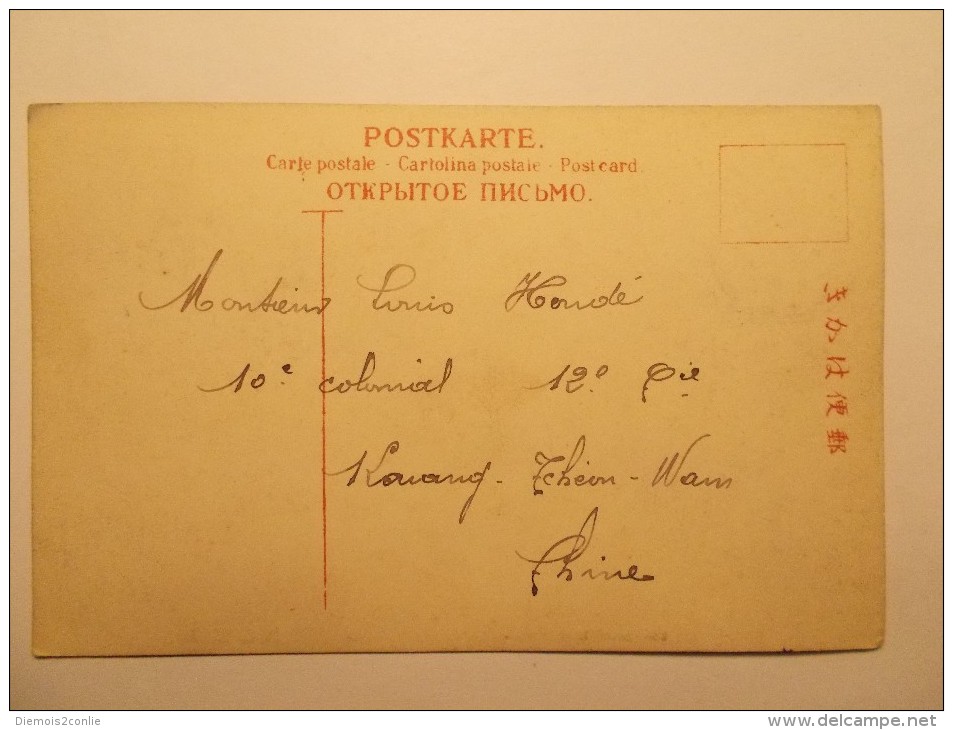 POSTKARTE.
Carte postale - Cartolina postale - Postcard.
ОТКРЫТОЕ ПИСЬМО.
きかは便郵
Monsieur Louis Houdé
10e colonial 12e Cie
Kouang-Tchéou-Wan
Chine
Diemois2conlie
www.delcampe.net